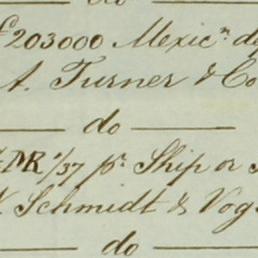 do
£203000 Mexicn. d
A. Turner & Co
do
DR 1/37 pr. Ship or
Schmidt & Vog
do